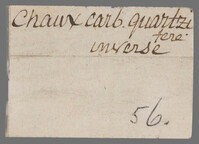 Chaux carb. quartzi
fere
inverse
56.